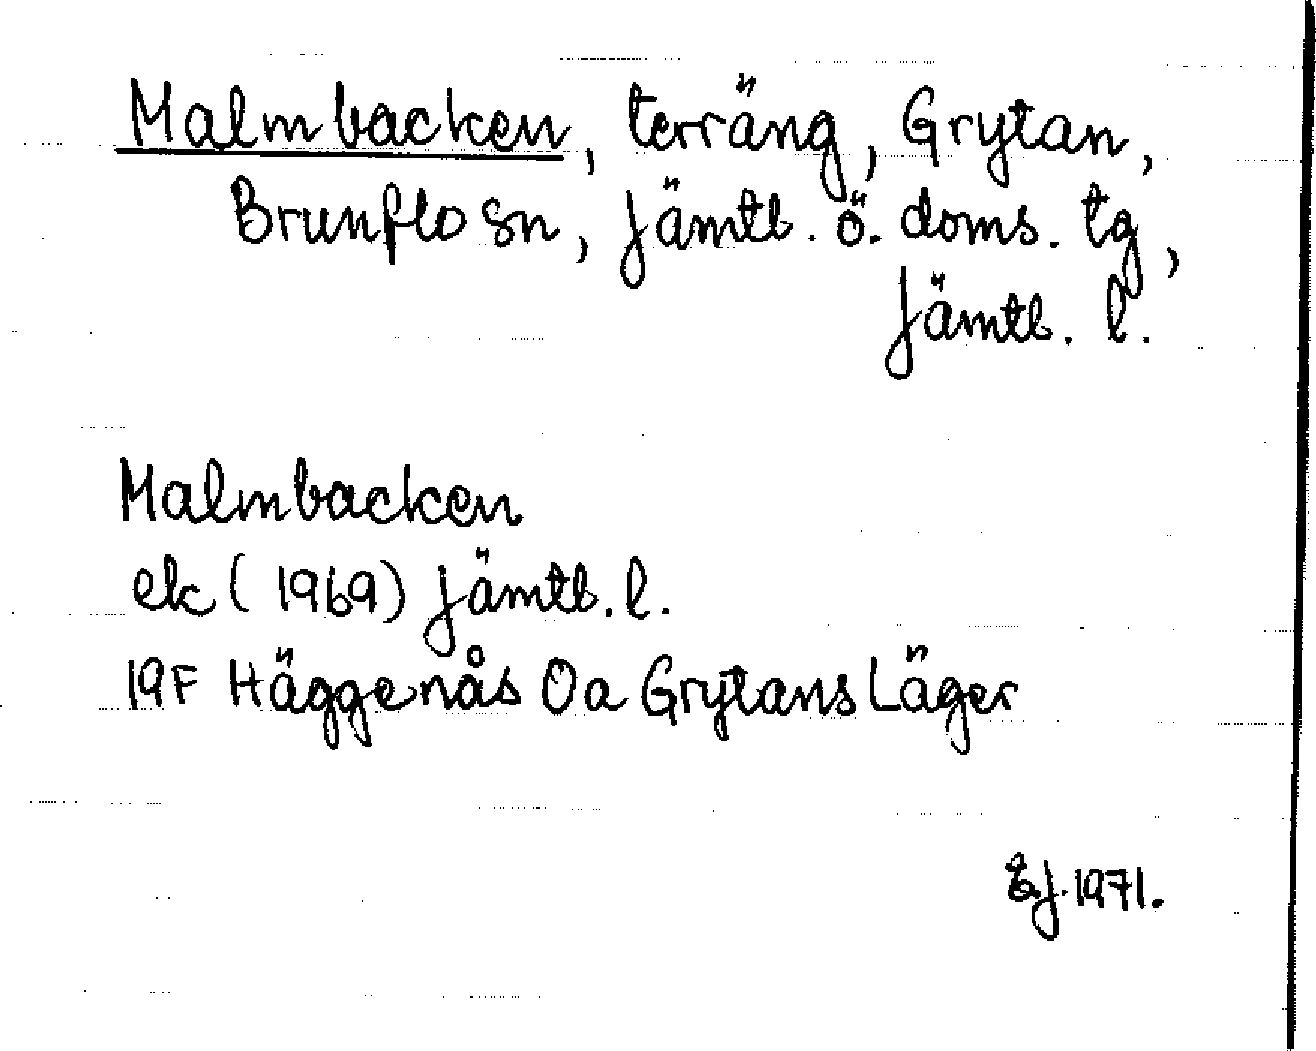 Malmbacken, terräng, Grytan,
Brunflo sn, Jämtl. ö. doms. tg,
Jämtl. l.
Malmbacken
ek (1969) Jämtl. l.
19F Häggenås 0a Grytans Läger
EJ. 1971.